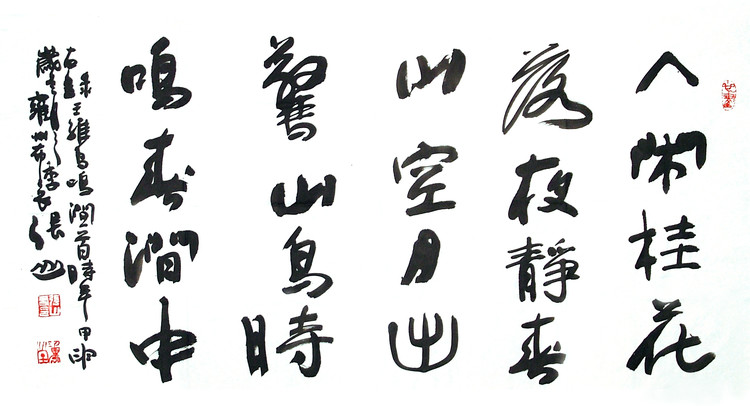 人閑桂花
落夜靜春
山空月出
驚山鳥時
鳴春澗中
右錄王維鳥鳴澗首時年甲申
歲雍州